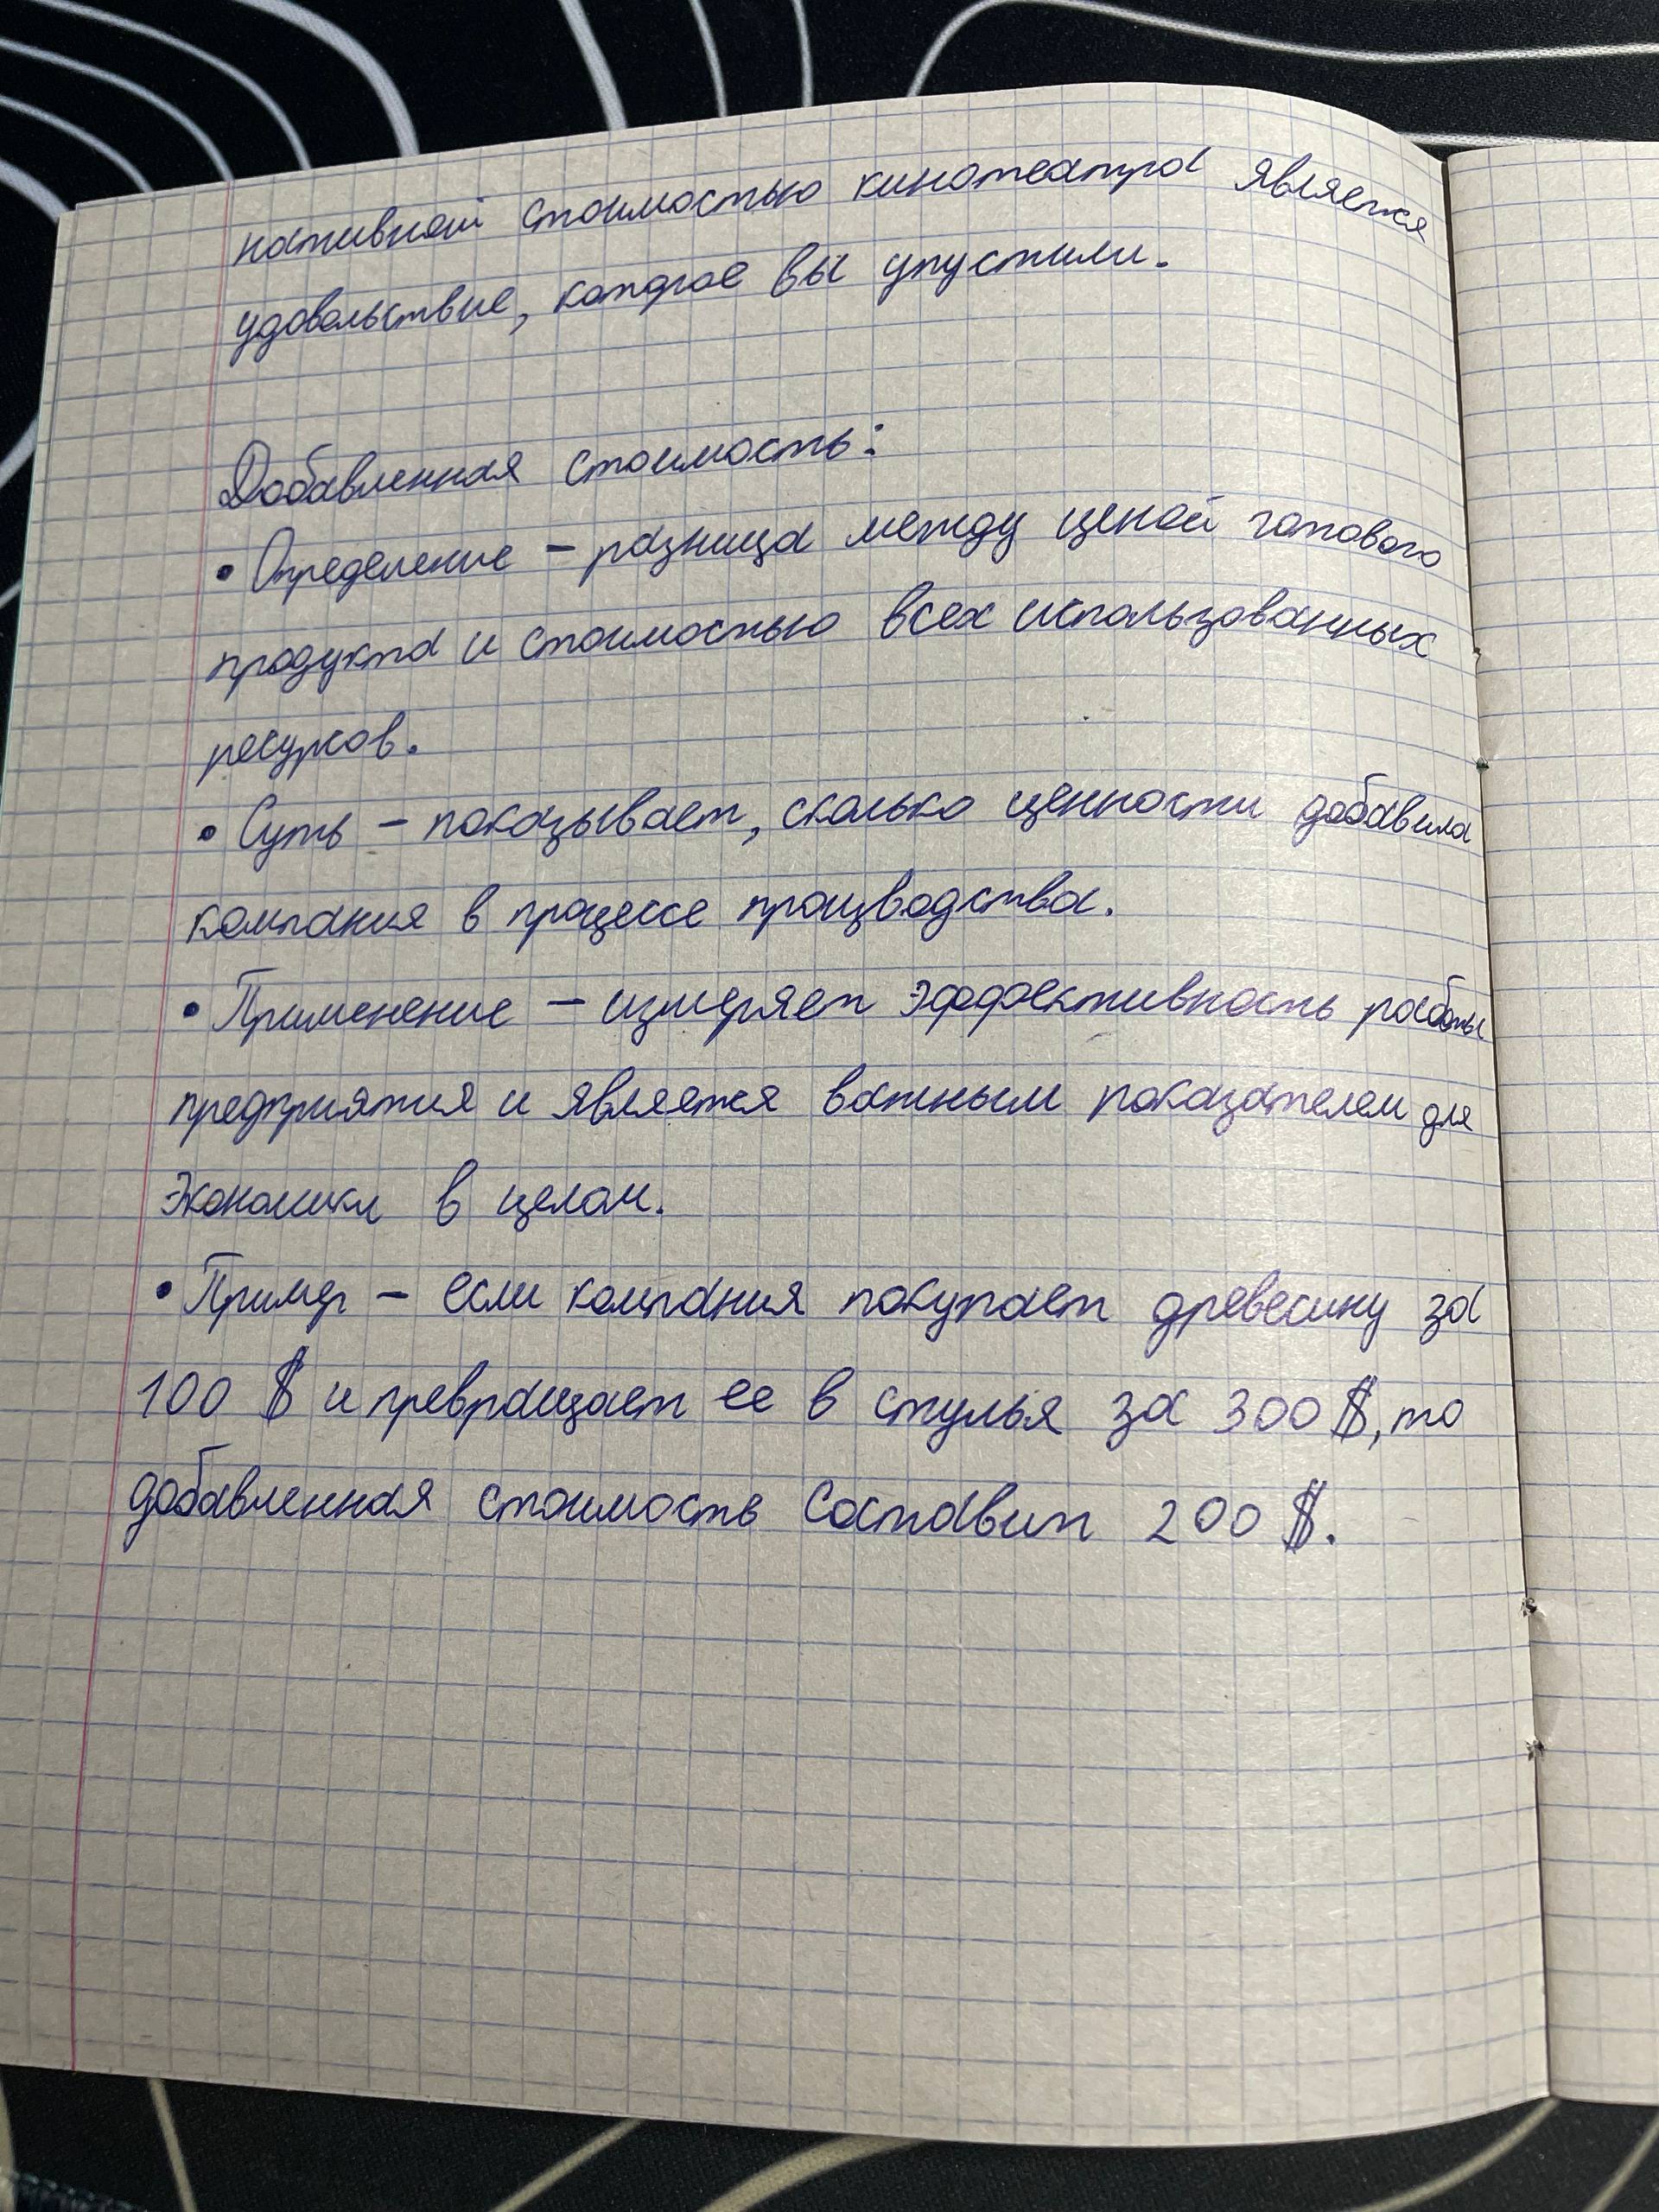 нативной стоимостью кинотеатра является
удовольствие, которое вы упустили.
Добавленная стоимость:
• Определение – разница между ценой готового
продукта и стоимостью всех использованных
ресурсов.
• Суть – показывает, сколько ценности добавила
компания в процессе производства.
• Применение – измеряет эффективность работы
предприятия и является важным показателем для
экономики в целом.
• Пример – если компания покупает древесину за
100 $ и превращает ее в стулья за 300 $, то
добавленная стоимость составит 200 $.